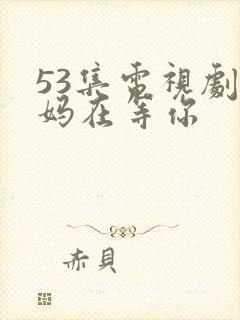 53集電視劇
妈在等你
赤貝